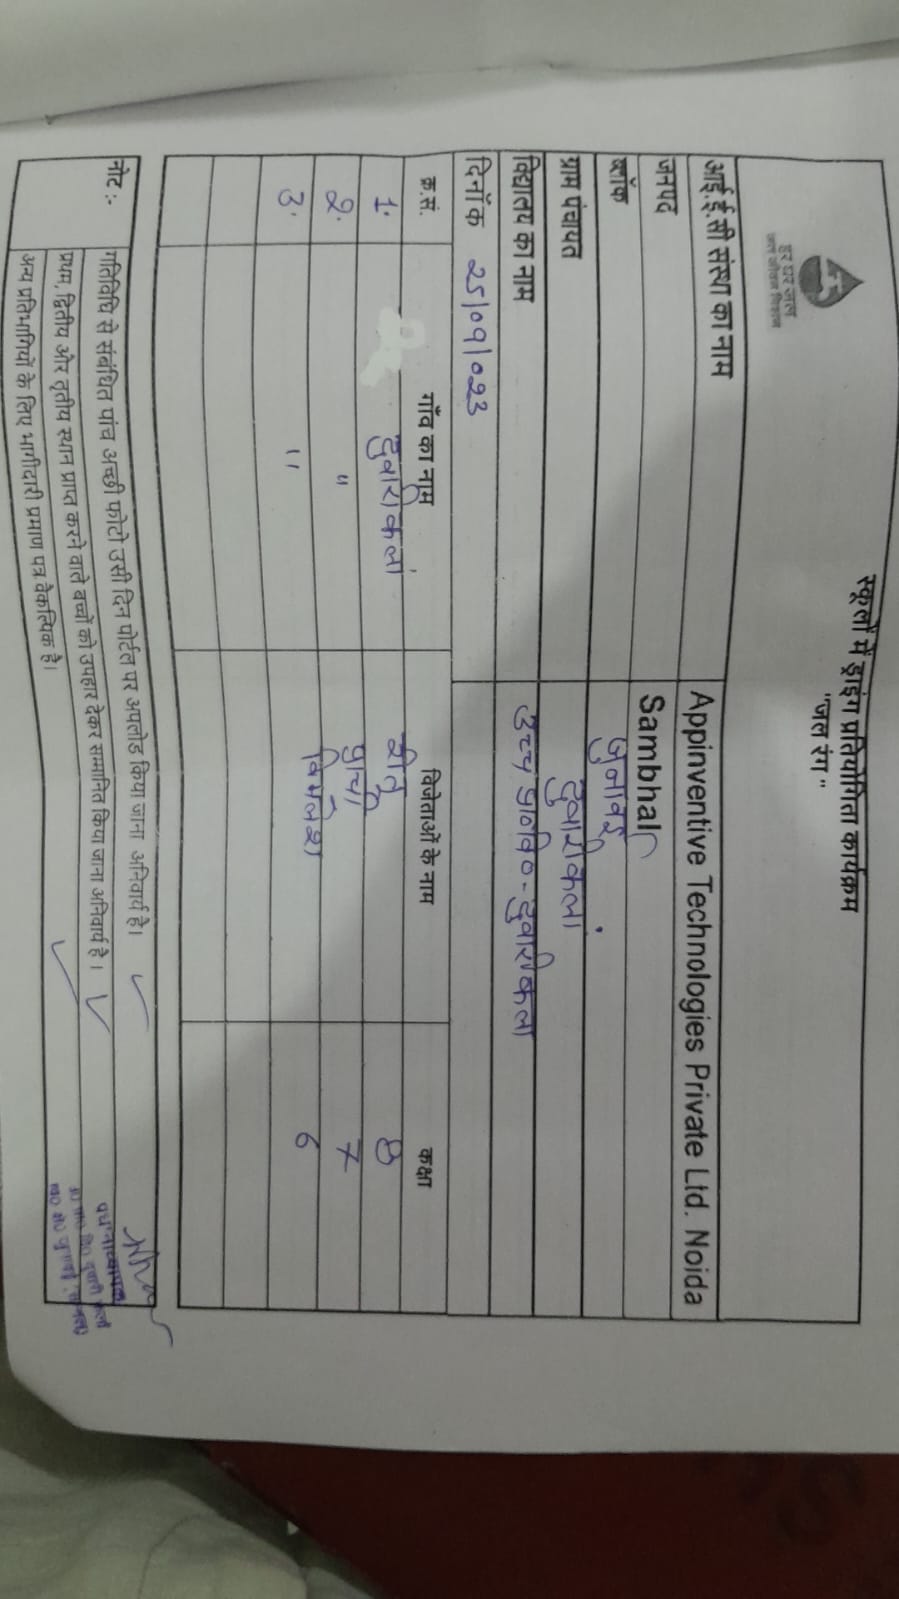 हर घर जल
जल जीवन मिशन
स्कूलों में ड्राइंग प्रतियोगिता कार्यक्रम
"जल रंग"
आई.ई.सी संस्था का नाम Appinventive Technologies Private Ltd. Noida
जनपद Sambhal
ब्लॉक जुनावई
ग्राम पंचायत दुवारीकलां
विद्यालय का नाम उच्च प्रा०वि०-दुवारीकला
दिनाँक 25/09/023
क्र.सं. गाँव का नाम विजेताओं के नाम कक्षा
1. दुवारीकलां शीतू 8
2. " प्राची 7
3. " विमलेश 6
नोट :- गतिविधि से संबंधित पांच अच्छी फोटो उसी दिन पोर्टल पर अपलोड किया जाना अनिवार्य है।
प्रथम, द्वितीय और तृतीय स्थान प्राप्त करने वाले बच्चों को उपहार देकर सम्मानित किया जाना अनिवार्य है।
अन्य प्रतिभागियों के लिए भागीदारी प्रमाण पत्र वैकल्पिक है।
प्रधानाध्यापक
उ० प्रा० वि० दुवारी कलाँ